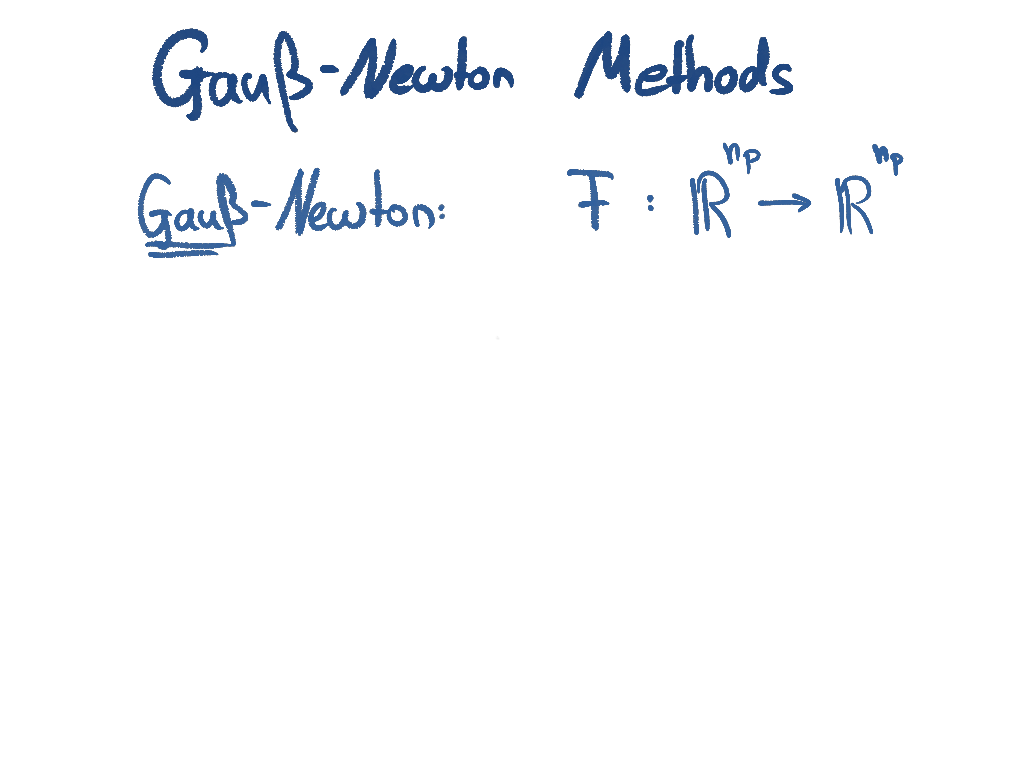 Gauß-Newton Methods
Gauß-Newton: F : ℝ^{n_p} → ℝ^{n_p}